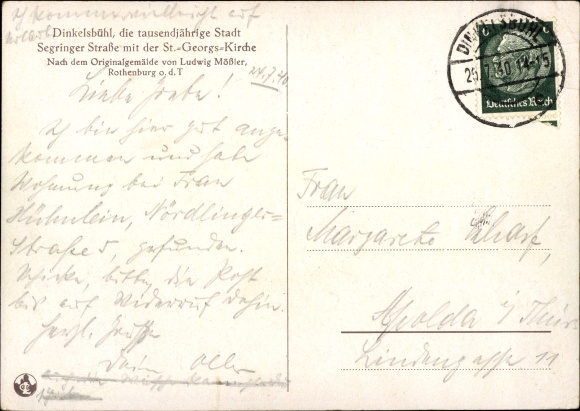 Dinkelsbühl, die tausendjährige Stadt
Segringer Straße mit der St.-Georgs-Kirche
Nach dem Originalgemälde von Ludwig Mößler,
Rothenburg o. d. T
24.7.40
Liebe Grete!
Ich bin hier gut ange-
kommen und habe
Wohnung bei Frau
Hühnlein, Nördlinger-
Straße 5, gefunden.
Schicke, bitte, die Post
bis auf Widerruf dahin.
Herzl. Grüße
Dein
DINKELSBÜHL
25.7.40
Deutsches Reich
Frau
Margarete Scharf,
Apolda i/Thür
Lindengasse 11